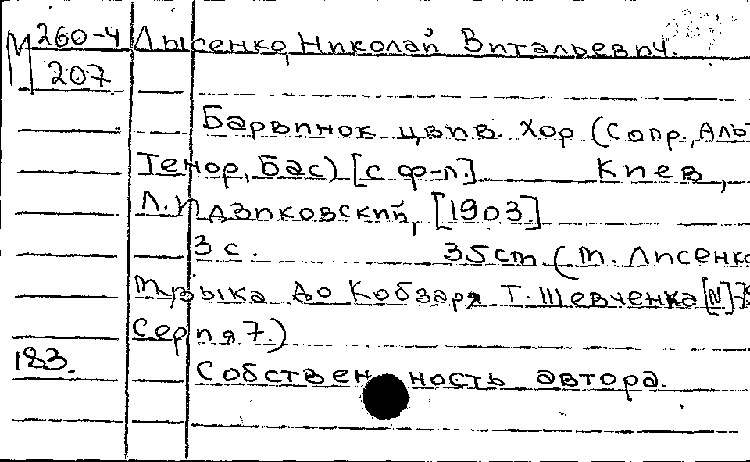 М 260-4 Лысенко, Николай Витальевич.
207
Барвинок цвив. Хор (Сопр., Аль
Тенор, Бас) [с ф-п.] Киев,
Л. Идзиковский, [1903]
3 с. 35 cm. (М. Лисенко
Музыка до Кобзаря Т. Шевченка [N] 7
Серпя 7.)
183. Собственность автора.